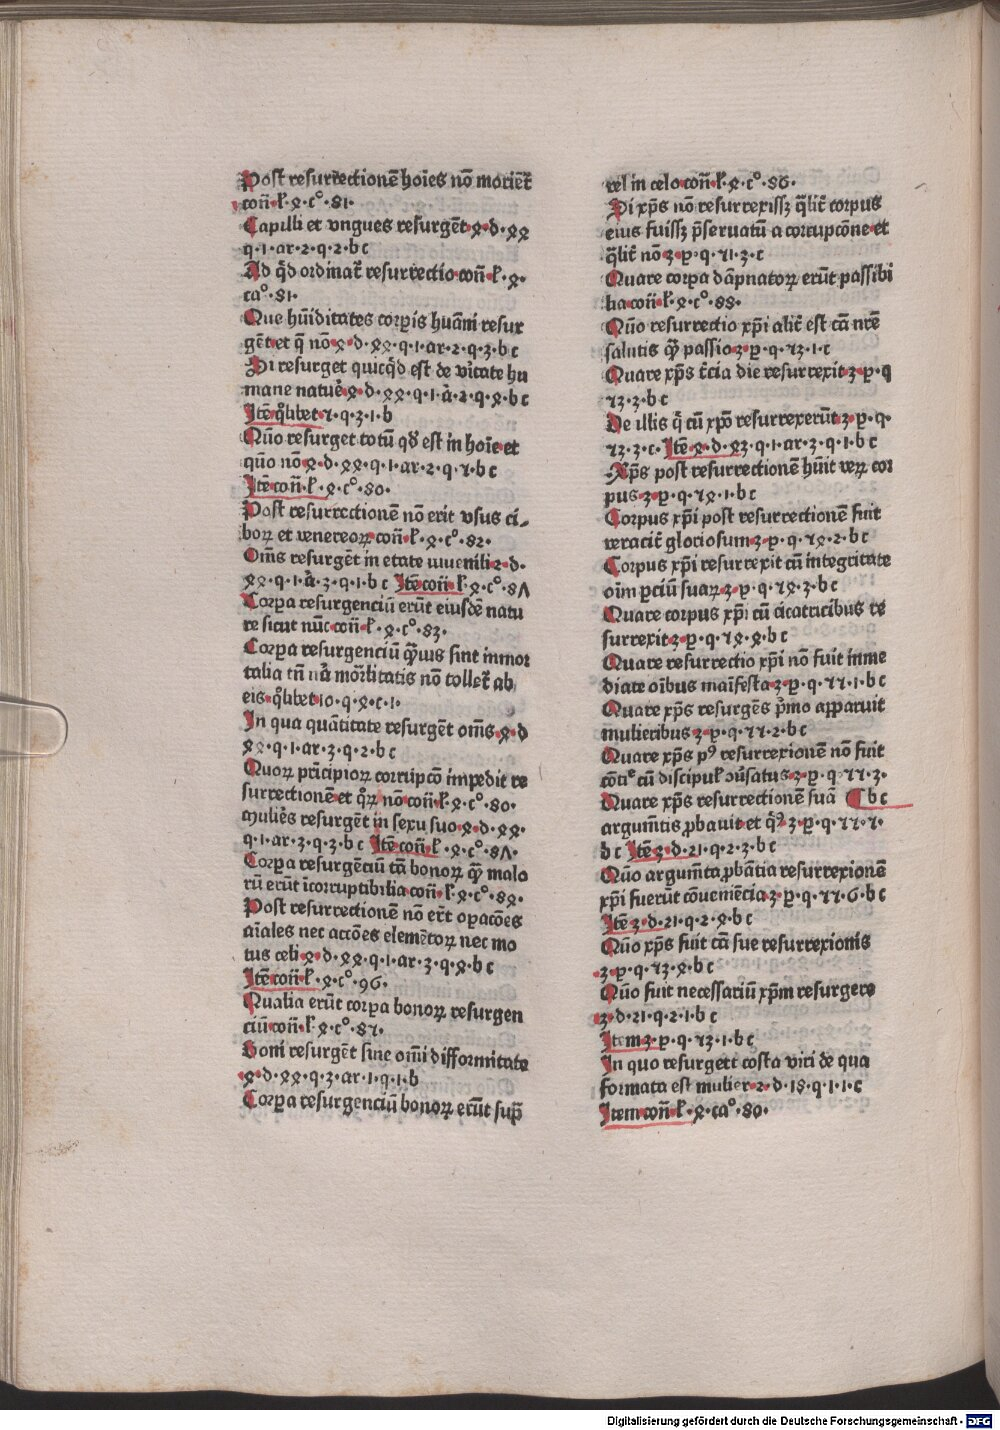 Post resurrectionē hoīes nō moriēt᷑
coñ·ł·ꝝ·c°·81·
Capilli et vngues resurgēt·ꝝ·d·ꝝꝝ
q·1·ar·2·q·2·b c
Ad qd̄ ordinat᷑ resurrectio·coñ·ł·ꝝ·
ca°·81·
Que hūiditates corꝑis huāni resur
gēt·et q̄ nō·ꝝ·d·ꝝꝝ·q·1·ar·2·q·3·b c
Si resurget quicqd̄ est de v̓itate hu
mane natue᷑·ꝝ·d·ꝝꝝ·q·1·ā·2·q·ꝝ·b c
Itē qͦlibet·ꝛ·q·3·1·b
Quō resurget totū qd̄ est in hoīe·et
quō nō·ꝝ·d·ꝝꝝ·q·1·ar·2·q·ꝛ·b c
Itē·coñ·ł·ꝝ·c°·80·
Post resurrectionē nō erit vsus ci⸗
boꝝ et venereoꝝ·coñ·ł·ꝝ·c°·82·
Om̄s resurgēt in etate iuuenili·ꝝ·d·
ꝝꝝ·q·1·ā·3·q·1·b c Itē coñ·ł·ꝝ·c°·8Λ
Corꝑa resurgenciū erūt eiusdē natu
re sicut nūc·coñ·ł·ꝝ·c°·83·
Corꝑa resurgenciū qͣuis sint inmor
talia tn̄ nā mor̄litatis nō tollet᷑ ab
eis·qͦlibet·10·q·ꝝ·c·1·
In qua quātitate resurgēt om̄s·ꝝ·d
ꝝꝝ·q·1·ar·3·q·2·b c
Quoꝝ prīcipioꝝ corrupcō impedit re
surrectionē·et qͦꝝ nō·coñ·ł·ꝝ·c°·80·
Mulie᷑s resurgēt in sexu suo·ꝝ·d·ꝝꝝ·
q·1·ar·3·q·3·b c Itē coñ·ł·ꝝ·c°·8Λ·
Corꝑa resurgēciū tā bonoꝝ qͣ malo
rū erūt īcorruptibilia·coñ·ł·ꝝ·c°·8ꝝ·
Post resurrectionē nō er̄t oꝑacōes
aīales nec accōes elemētoꝝ nec mo
tus celi·ꝝ·d·ꝝꝝ·q·1·ar·3·q·ꝝ·b c
Itē·coñ·ł·ꝝ·c°·96·
Qualia erūt corꝑa bonoꝝ resurgen
ciū·coñ·ł·ꝝ·c°·8ꝛ·
Boni resurgēt sine om̄i difformitate
·ꝝ·d·ꝝꝝ·q·3·ar·1·q·1·b
Corꝑa resurgenciū bonoꝝ erūt suꝑ̄
rel in celo·coñ·ł·ꝝ·c°·86·
Si xp̄s nō resurrexissꝫ qͣlit᷑ corpus
eius fuissꝫ p̄seruatū a corrupcōne·et
qͣlit᷑ nō·3·p·q·ꝛ1·3·c
Quare corꝑa dāpnatoꝝ erūt passibi
lia·coñ·ł·ꝝ·c°·88·
Quō resurrectio xp̄i alit᷑ est cā nr̄e
salutis qͣ passio·3·p·q·ꝛ3·1·c
Quare xp̄s t̄cia die resurrexit·3·p·q
ꝛ3·2·b c
De illis q̄ cū xp̄o resurrexerūt·3·p·q·
ꝛ3·3·c· Itē·ꝝ·d·ꝝ3·q·1·ar·3·q·1·b c
Xp̄s post resurrectionē hūit veꝝ cor
pus·3·p·q·ꝛꝝ·1·b c
Corpus xp̄i post resurrectionē fuit
veracit᷑ gloriosum·3·p·q·ꝛꝝ·2·b c
Corpus xp̄i resurrexit cū integritate
oīm ꝑciū suaꝝ·3·p·q·ꝛꝝ·3·b c
Quare corpus xp̄i cū cicatricibus re
surrexit·3·p·q·ꝛꝝ·ꝝ·b c
Quare resurrectio xp̄i nō fuit inme
diate oībus maīfesta·3·p·q·ꝛꝛ·1·b c
Quare xp̄s resurgēs p̄mo apparuit
mulieribus·3·p·q·ꝛꝛ·2·b c
Quare xp̄s pꝰ resurrexionē nō fuit
cōtīe cū discipuł ꝯūsatus·3·p·q·ꝛꝛ·3·
Quare xp̄s resurrectionē suā ⸿ b c
argum̄tis ꝓbauit·et qͥꝰ·3·p·q·ꝛꝛ·ꝛ·
b c Itē·3·d·21·q·2·3·b c
Quō argum̄ta ꝓbātia resurrexionē
xp̄i fuerūt cōueniēcia·3·p·q·ꝛꝛ·6·b c
Itē·3·d·21·q·2·ꝝ·b c
Quō xp̄s fuit cā sue resurrexionis
·3·p·q·ꝛ3·ꝝ·b c
Quō fuit necessariū xp̄m resurgere
3·d·21·q·2·1·b c
Item·3·p·q·ꝛ3·1·b c
In quo resurgett costa viri de qua
formata est mulier·2·d·18·q·1·1·c
Item·coñ·ł·ꝝ·ca°·80·
Digitalisierung gefördert durch die Deutsche Forschungsgemeinschaft - DFG